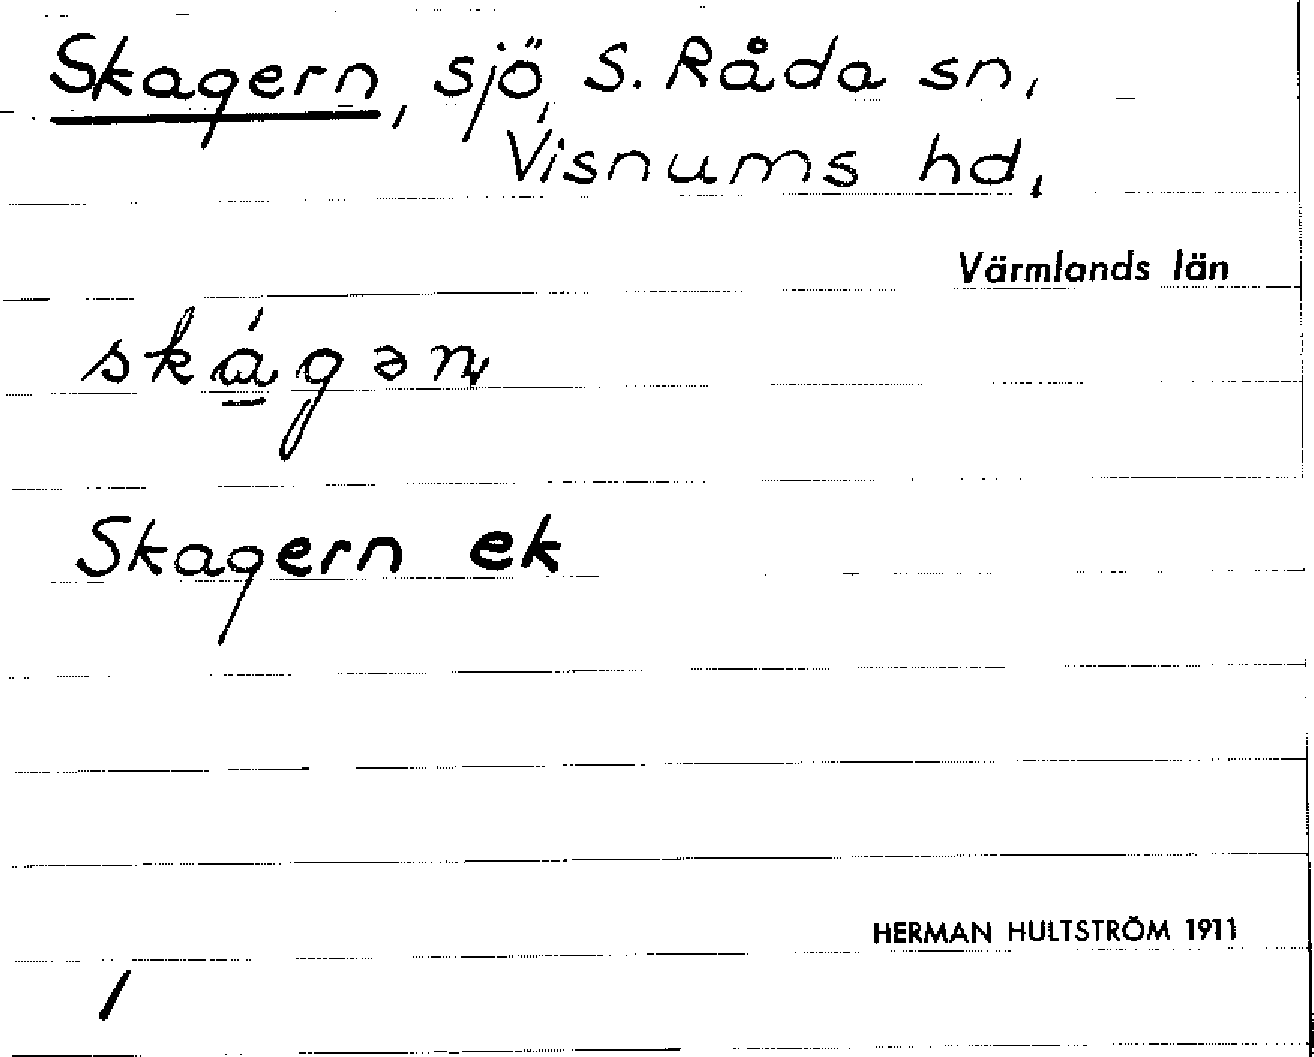 Skagern, sjö, S. Råda sn,
Visnums hd,
Värmlands län
ská̱gəɳ
Skagern ek
HERMAN HULTSTRÖM 1911
/